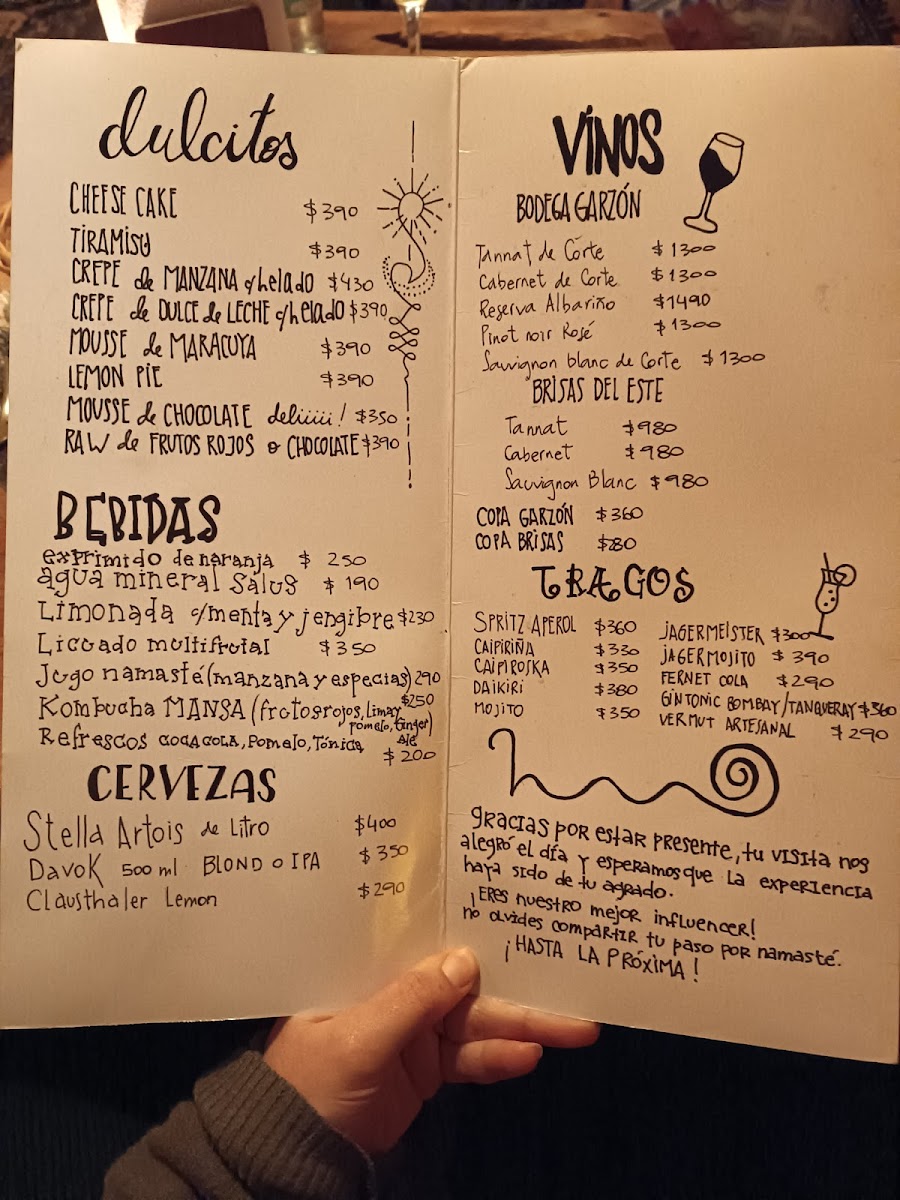 dulcitos
CHEESE CAKE $390
TIRAMISU $390
CREPE de MANZANA c/helado $430
CREPE de DULCE de LECHE c/helado $390
MOUSSE de MARACUYA $390
LEMON PIE $390
MOUSSE de CHOCOLATE deliiiii! $350
RAW de FRUTOS ROJOS o CHOCOLATE $390
BEBIDAS
exprimido de naranja $ 250
agua mineral Salus $ 190
Limonada c/menta y jengibre $230
Licuado multifrutal $350
Jugo namasté (manzana y especias) 290
Kombucha MANSA (frutos rojos, Limay $250
pomelo, Ginger)
Refrescos COCA COLA, Pomelo, Tónica, ale
$ 200
CERVEZAS
Stella Artois de Litro $400
Davok 500 ml BLOND O IPA $350
Clausthaler Lemon $290
VÍNOS
BODEGA GARZÓN
Tannat de Corte $ 1300
Cabernet de Corte $ 1300
Reserva Albariño $1490
Pinot noir Rosé $ 1300
Sauvignon blanc de Corte $ 1300
BRISAS DEL ESTE
Tannat $980
Cabernet $980
Sauvignon Blanc $980
COPA GARZÓN $360
COPA BRISAS $280
TRAGOS
SPRITZ APEROL $360
CAIPIRIÑA $330
CAIPIROSKA $350
DAIKIRI $380
MOJITO $350
JAGERMEISTER $300
JAGERMOJITO $ 390
FERNET COLA $290
GIN TONIC BOMBAY/TANQUERAY $360
VERMUT ARTESANAL $290
gracias por estar presente, tu visita nos
alegró el día y esperamos que la experiencia
haya sido de tu agrado.
¡Eres nuestro mejor influencer!
no olvides compartir tu paso por namasté.
¡HASTA LA PRÓXIMA!